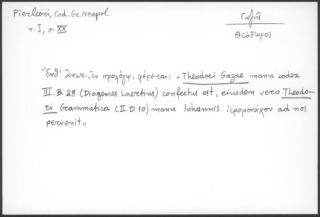 Pierleoni, Cod. Gr. Neapol.
τ. I, σ. XX
Γαζῆς
Θεόδωρος
"Ἐνθ' ἀνωτ. ἐν προλόγῳ, φέρεται: "Theodori Gazae manu codex
III. B. 28 (Diogenes Laertius) confectus est, eiusdem vero Theodo-
ri Grammatica (II. D. 10) manu Iohannis ἱερομονάχου ad nos
pervenit."